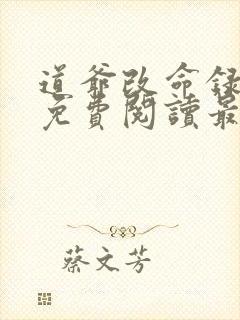 道爺改命錄
免費閱讀最
蔡文芳